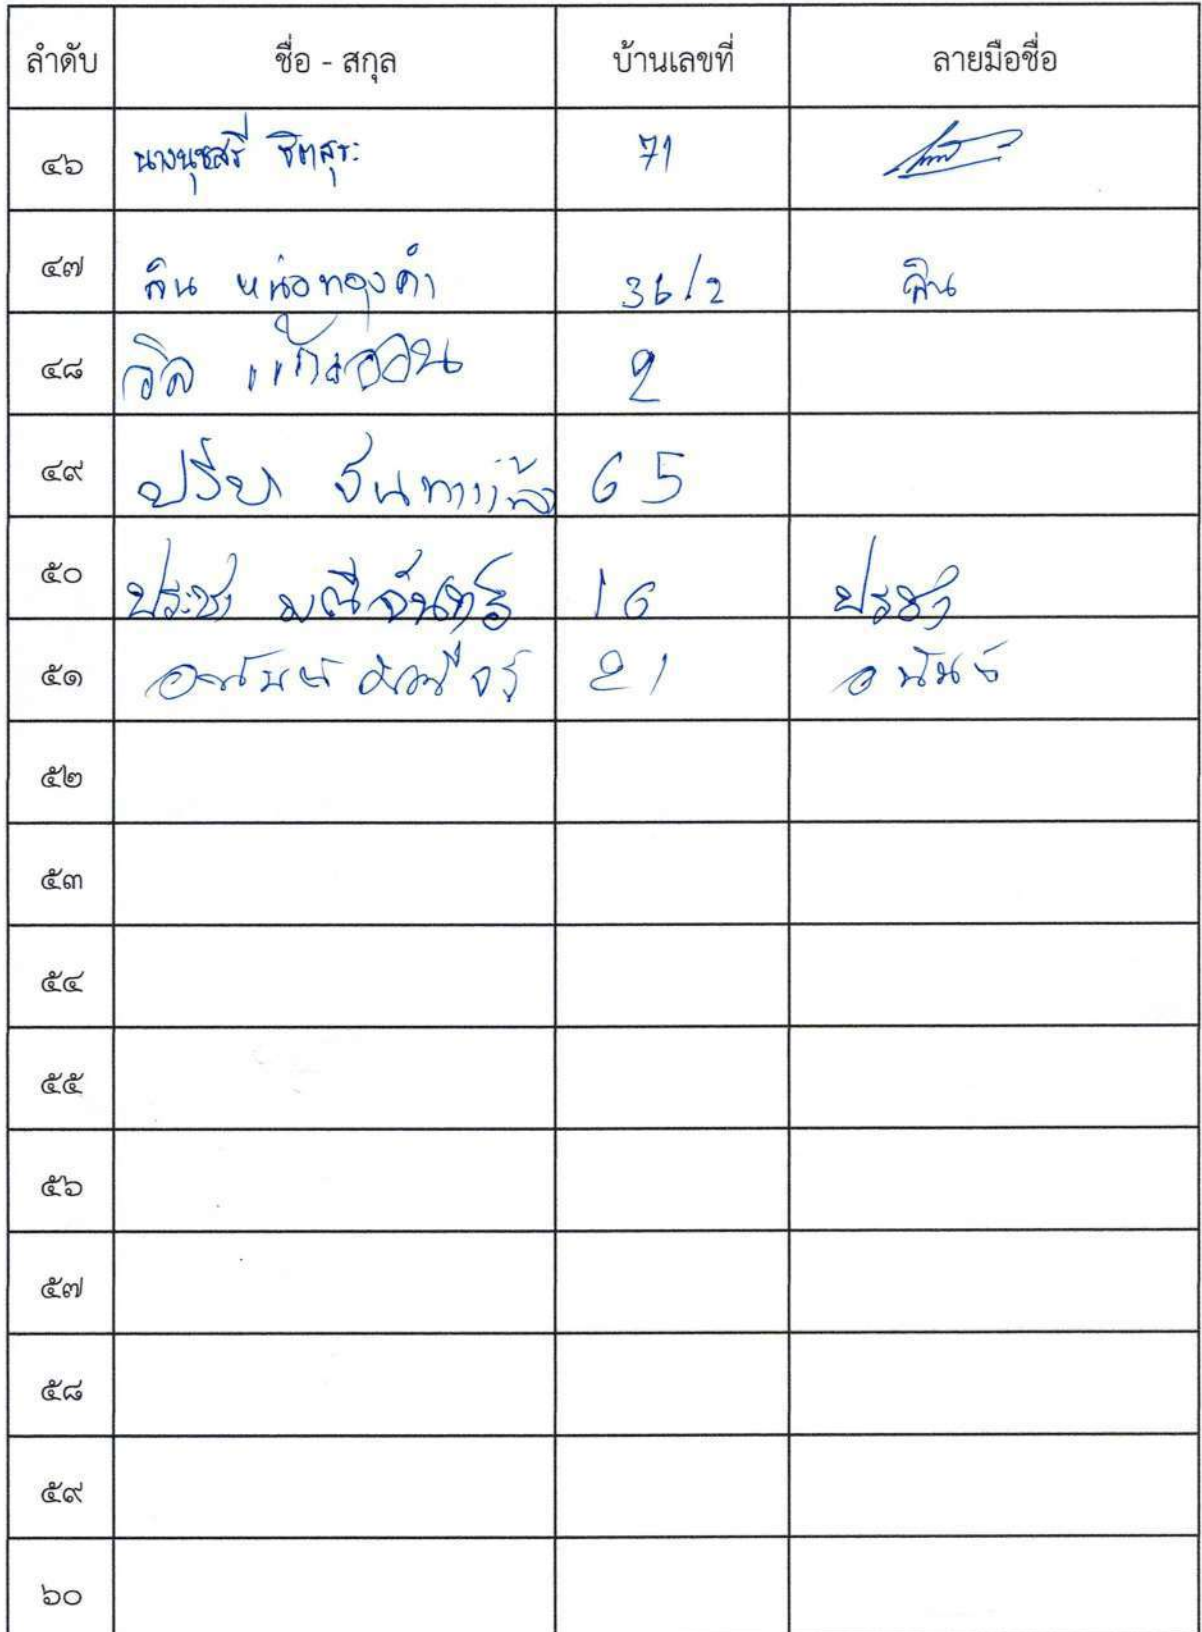 ลำดับ ชื่อ - สกุล บ้านเลขที่ ลายมือชื่อ
๔๖ นางนุชสรี ชิตสุระ 71
๔๗ สิน หน่อทองคำ 36/2 สิน
๔๘ แก้วออน 2
๔๙ ปรียา จันทาแก้ว 65
๕๐ ประชา มณีจันทร์ 16 ประชา
๕๑ 21 อนันต์
๕๒
๕๓
๕๔
๕๕
๕๖
๕๗
๕๘
๕๙
๖๐